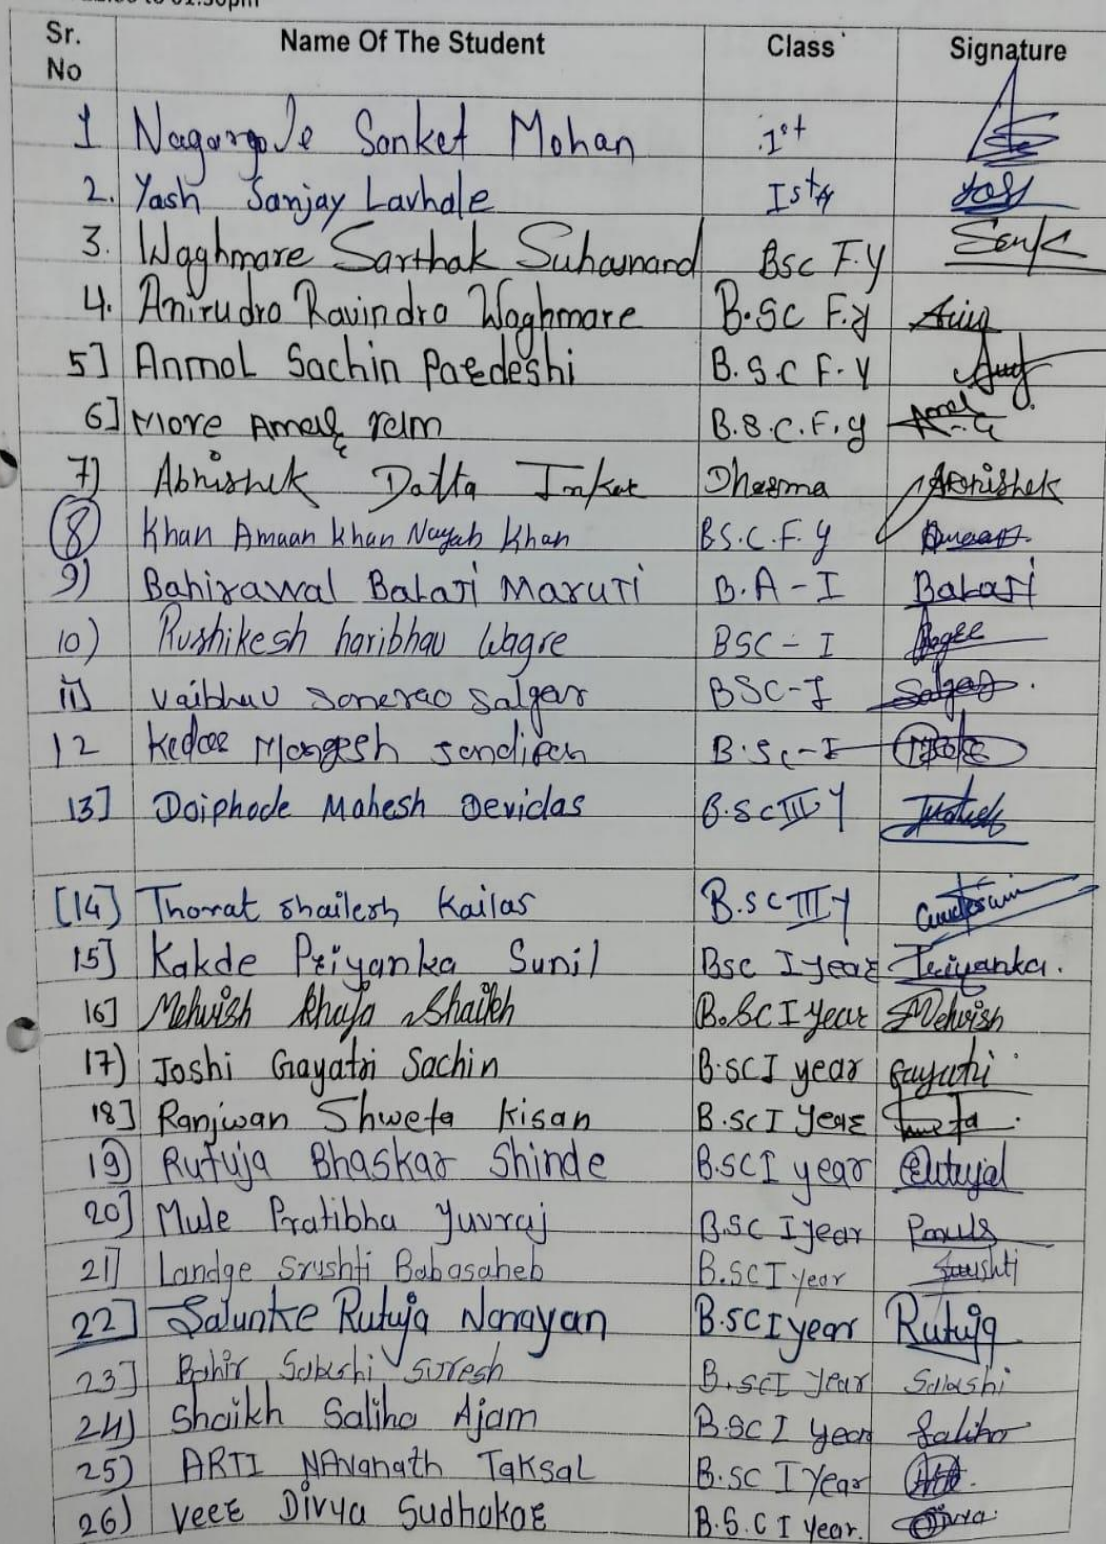 to 01:30pm
Sr. No Name Of The Student Class Signature
1 Nagargoje Sanket Mohan Ist
2. Yash Sanjay Lavhale Ist
3. Waghmare Sarthak Sukhanand Bsc F.Y
4. Anirudra Ravindra Waghmare B.SC F.y
5] Anmol Sachin Pardeshi B.S.C F.Y
6] More B.S.C.F.y
7) Abhishek Datta Inkar Dharma Abhishek
8 Khan Amaan Khan Nayab Khan BS.C.F.y
9) Bahirawal BaLaJi MaruTi B.A - I BaLaJi
10) Rushikesh haribhau Wagre BSC - I
11] Vaibhav Sonerao Salgar BSC-I Salgar
12 Kedar Mangesh Sandipan B.Sc-I
13] Doiphode Mahesh Devidas B.Sc III Y
[14] Thorat Shailesh Kailas B.SC III Y
15] Kakde Priyanka Sunil Bsc I year Priyanka.
16] Mehvish Khaja Shaikh B.Sc I year Mehvish
17) Joshi Gayatri Sachin B.SC I year Gayatri
18] Ranjwan Shweta Kisan B.SC I Year
19) Rutuja Bhaskar Shinde B.SC I year Rutuja
20] Mule Pratibha Yuvraj B.SC I year
21] Landge Srushti Babasaheb B.SC I year Srushti
22] Salunke Rutuja Narayan B.SC I year Rutuja
23] Bahir Sakshi Suresh B.SCI Year Sakshi
24) Shaikh Saliha Ajam B.SC I year Saliha
25) ARTI NAvanath TaKsaL B.SC I Year
26) Veer Divya Sudhakar B.S.C I year. Divya